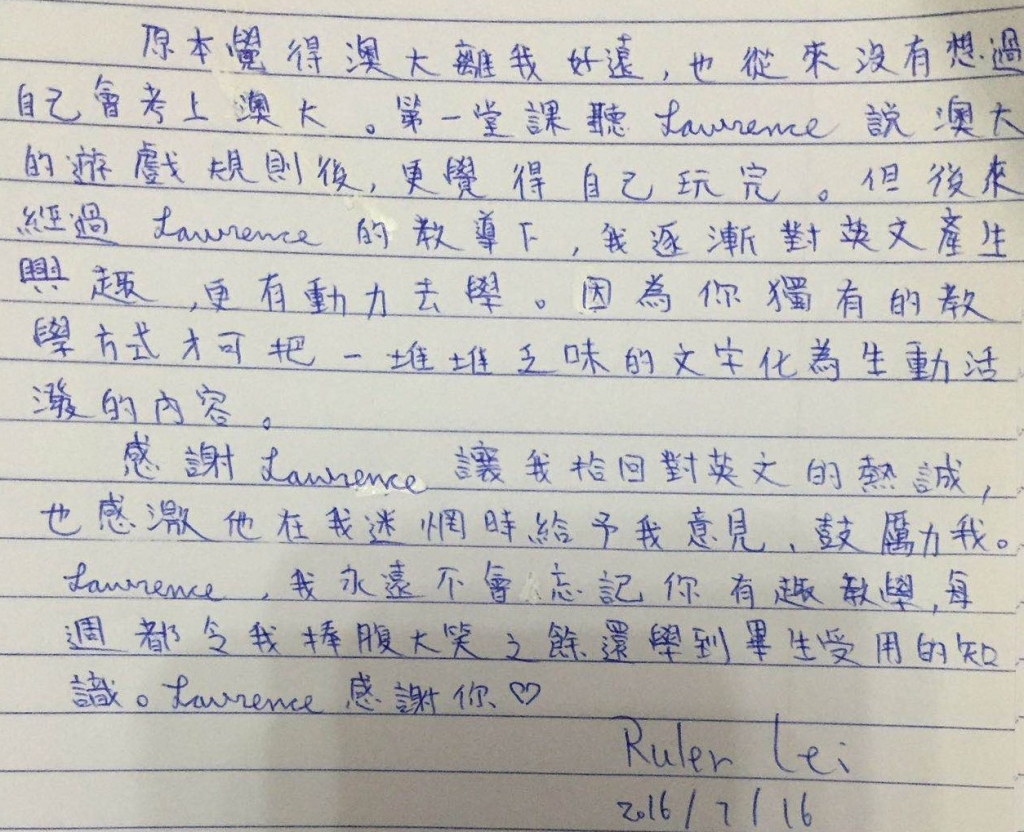 原本覺得澳大離我好遠，也從來沒有想過
自己會考上澳大。第一堂課聽Lawrence說澳大
的遊戲規則後，更覺得自己玩完。但後來
經過Lawrence的教導下，我逐漸對英文產生
興趣，更有動力去學。因為你獨有的教
學方式才可把一堆堆乏味的文字化為生動活
潑的內容。
感謝Lawrence讓我拾回對英文的熱誠，
也感激他在我迷惘時給予我意見、鼓勵我。
Lawrence，我永遠不會忘記你有趣教學，每
週都令我捧腹大笑之餘還學到畢生受用的知
識。Lawrence感謝你♡
Ruler Lei
2016/7/16